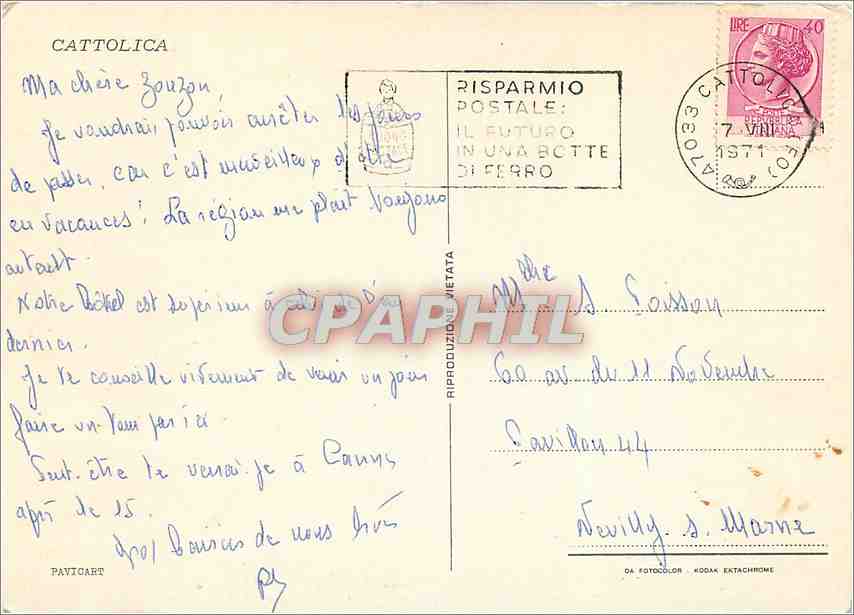 CATTOLICA
Ma chère Zouzou,
Je voudrais pouvoir arrêter les jours
de passer, car c'est merveilleux d'être
en vacances! La région me plait toujours
autant.
Notre hôtel est supérieur à celui de l'an
dernier.
Je te conseille vivement de venir un jour
faire un tour par ici.
Peut-être te verrai-je à Cannes
après le 15.
Gros baisers de nous trois
RISPARMIO
POSTALE:
IL FUTURO
IN UNA BOTTE
DI FERRO
LIRE 40
REPUBBLICA
ITALIANA
47033 CATTOLICA (FO)
7 VIII
1971
CPAPHIL
RIPRODUZIONE VIETATA
Melle S. Poisson
60 av du 11 Novembre
Pavillon 44
Neuilly s. Marne
PAVICART
DA FOTOCOLOR - KODAK EKTACHROME